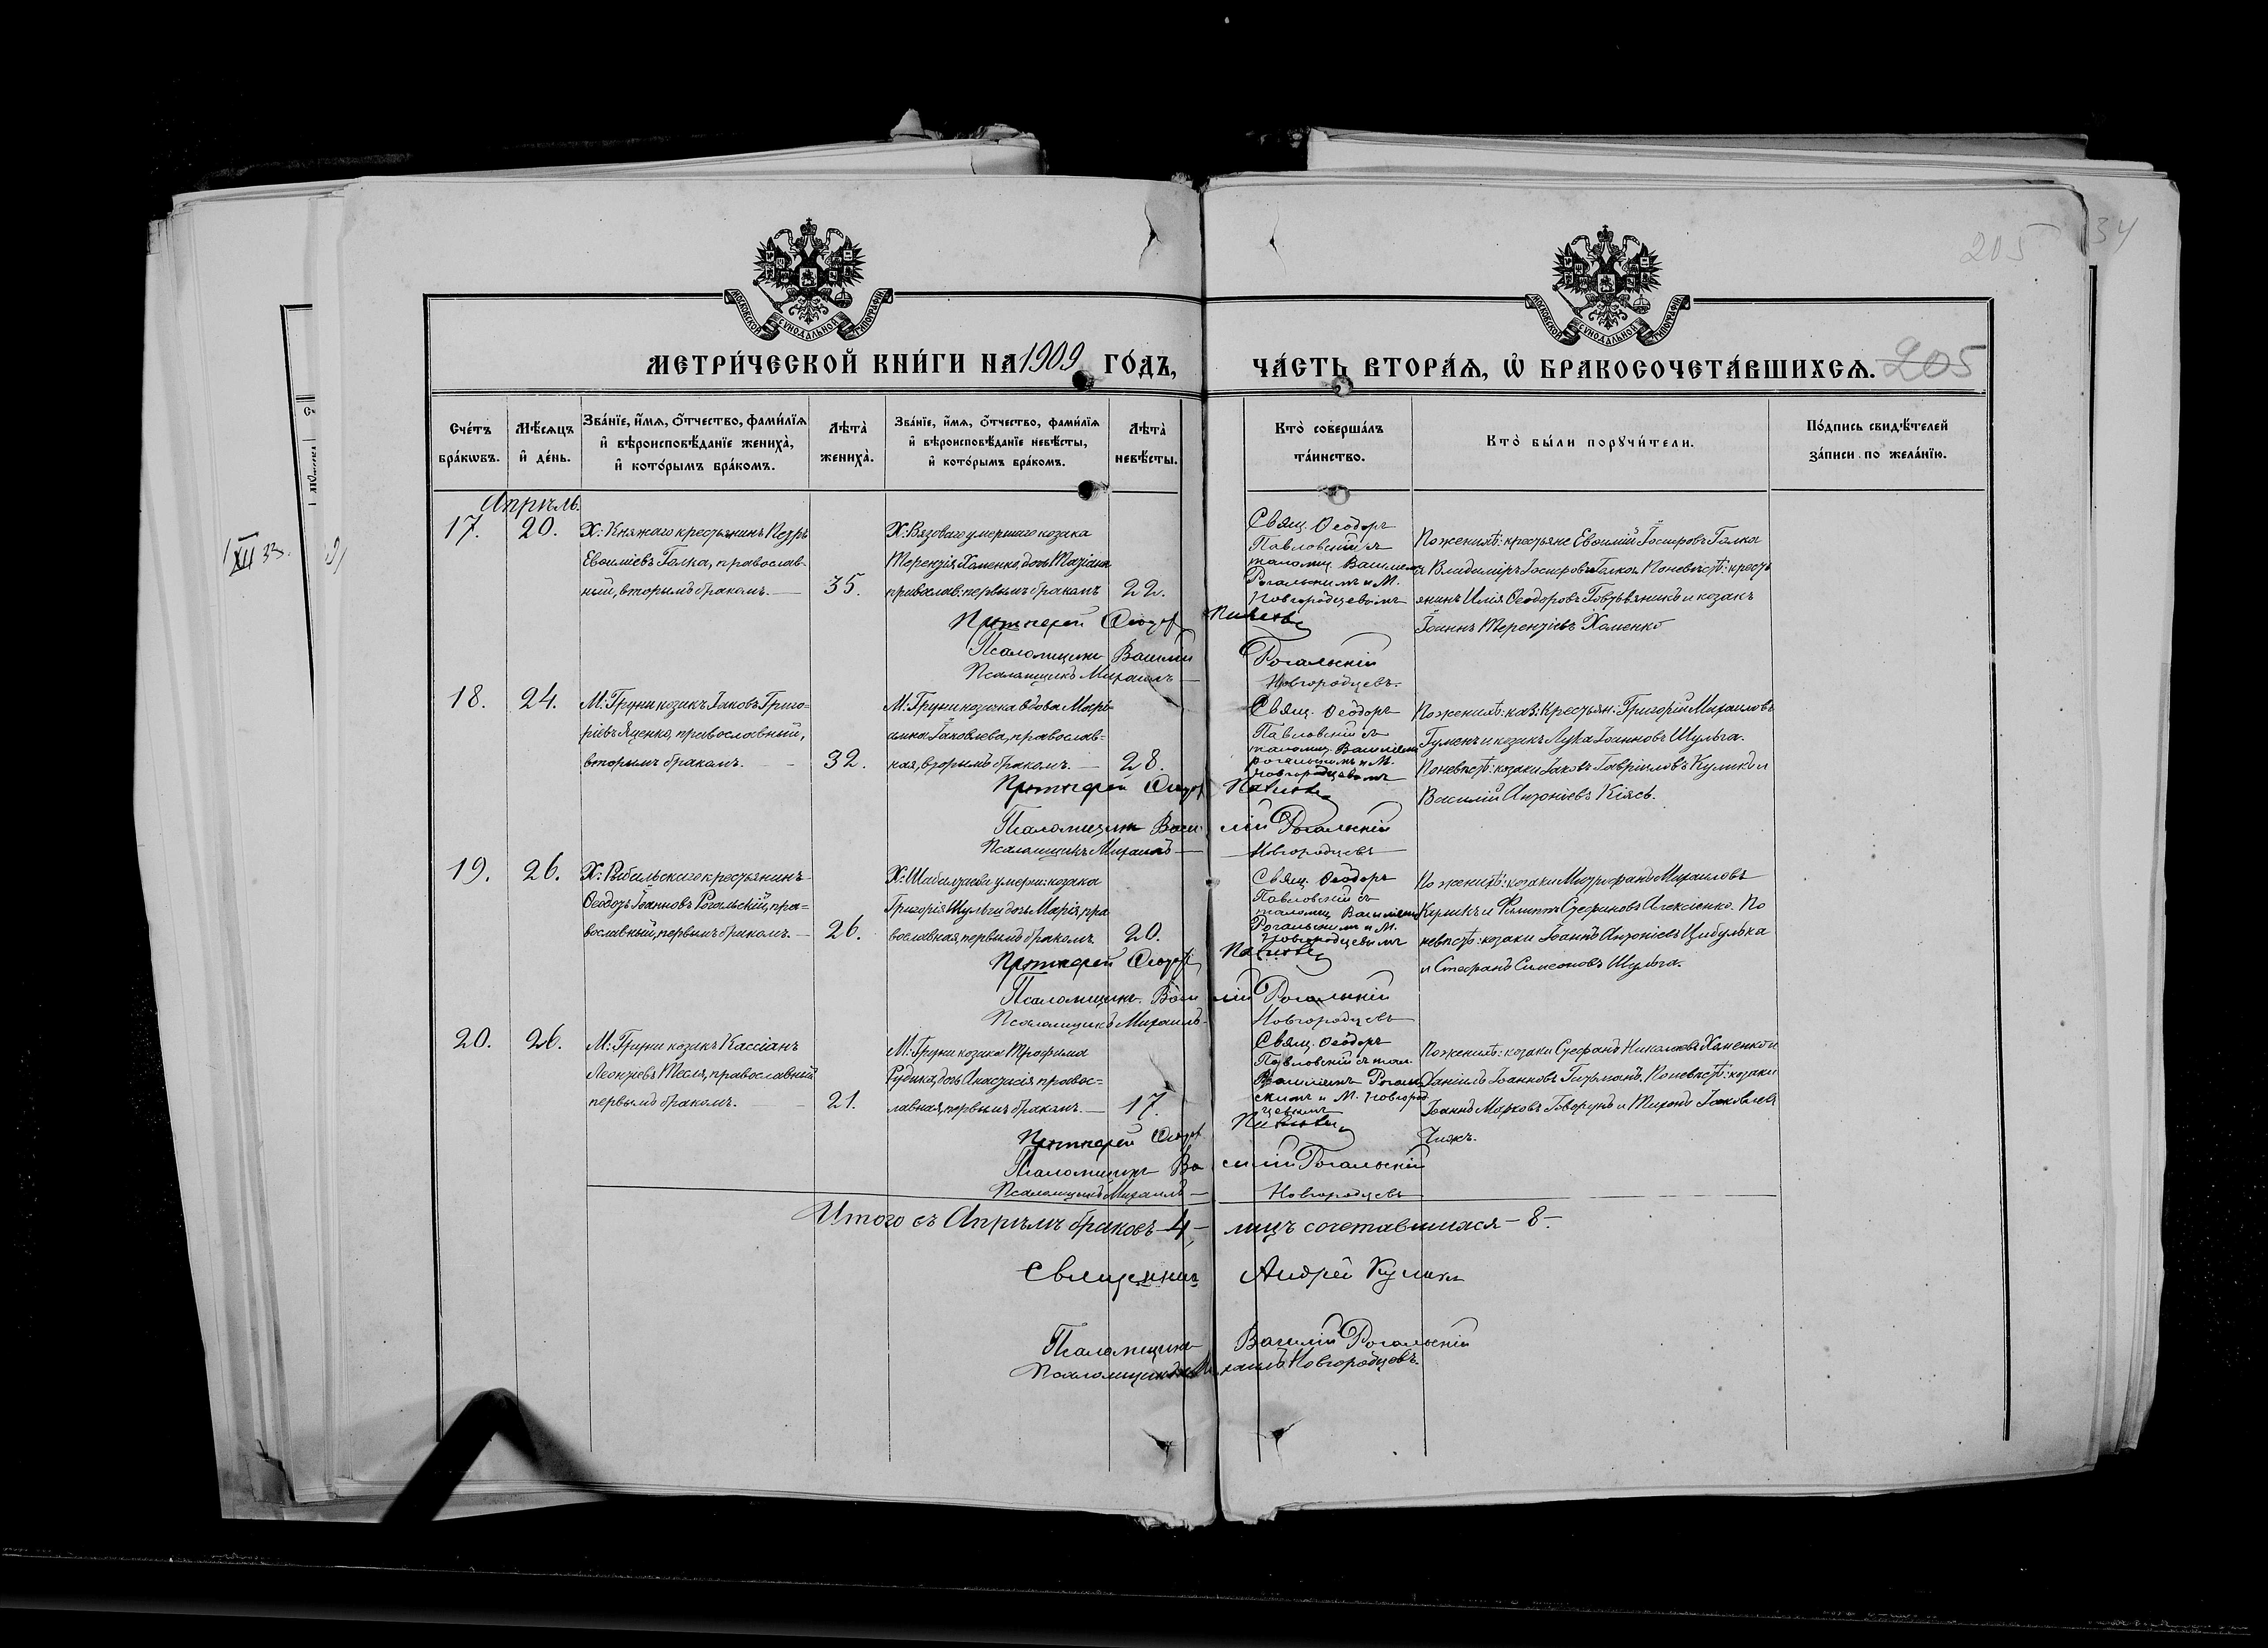 205
34
МОСКОВСКОЙ СѴНОДАЛЬНОЙ ТИПОГРАФІИ
МОСКОВСКОЙ СѴНОДАЛЬНОЙ ТИПОГРАФІИ
МЕТРИ́ЧЕСКОЙ КНИ́ГИ НА 1909 ГО́ДЪ,
ЧА́СТЬ ВТОРА́Ѧ, Ѡ҆ БРАКОСОЧЕТА́ВШИХСѦ. 205
Сче́тъ бра́кѡвъ.
Мѣ́сѧцъ и҆ де́нь.
Зва́нїе, и҆́мѧ, ѻ҆́тчество, фами́лїѧ и҆ вѣроисповѣ́данїе жениха̀, и҆ кото́рымъ бра́комъ.
Лѣта̀ жениха̀.
Зва́нїе, и҆́мѧ, ѻ҆́тчество, фами́лїѧ и҆ вѣроисповѣ́данїе невѣ́сты, и҆ кото́рымъ бра́комъ.
Лѣта̀ невѣ́сты.
Кто̀ соверша́лъ та́инство.
Кто̀ бы́ли порꙋчи́тели.
По́дпись свидѣ́телей за́писи по жела́нїю.
Апрѣль.
17.
20.
Х: Княжаго крестьянинъ Петръ
Евѳиміевъ Галка, православ-
ный, вторымъ бракомъ.
35.
Х: Вязоваго умершаго козака
Терентія Хоменко, дочь Татіана
православ: первымъ бракомъ
22.
Свящ. Ѳеодоръ
Павловскій съ
псаломщ. Василіемъ
Рогальскимъ и М.
Новгородцевымъ
По женихѣ: крестьяне Евѳимій Іосифовъ Галка
и Владиміръ Іосифовъ Галка. По невѣстѣ: кресть
янинъ Илія Ѳеодоровъ Говтвяникъ и козакъ
Іоаннъ Терентіевъ Хоменко
Протоіерей Ѳеодоръ Павловскій
Псаломщикъ Василій Рогальскій
Псаломщикъ Михаилъ Новгородцевъ.
18.
24.
М: Груни козакъ Іаковъ Григо-
ріевъ Яценко, православный,
вторымъ бракомъ.
32.
М: Груни козачка вдова Марі-
анна Іаковлева, православ-
ная, вторымъ бракомъ.
28.
Свящ. Ѳеодоръ
Павловскій съ
псаломщ. Василіемъ
Рогальскимъ и М.
Новгородцевымъ
По женихѣ: каз: крестьян: Григорій Михаиловъ
Гуменъ и козакъ Лука Іоанновъ Шульга.
По невѣстѣ: козаки Іаковъ Гавріиловъ Куликъ и
Василій Антоніевъ Кіясь.
Протоіерей Ѳеодоръ Павловскій
Псаломщикъ Василій Рогальскій
Псаломщикъ Михаилъ Новгородцевъ
19.
26.
Х: Рыбальскаго крестьянинъ
Ѳеодотъ Іоанновъ Рогальскій, пра-
вославный, первымъ бракомъ.
26.
Х: Шабалтаева умерш: козака
Григорія Шульги дочь Марія, пра
вославная, первымъ бракомъ
20.
Свящ. Ѳеодоръ
Павловскій съ
псаломщ Василіемъ
Рогальскимъ и М.
Новгородцевымъ
По женихѣ: козаки Митрофанъ Михаиловъ
и Филиппъ Стефановъ Алексіенко. По
невѣстѣ: козаки Іоаннъ Антоніевъ Цибулька
и Стефанъ Симеоновъ Шульга.
Протоіерей Ѳеодоръ Павловскій
Псаломщикъ Василій Рогальскій
Псаломщикъ Михаилъ Новгородцевъ
20.
26.
М: Груни козакъ Кассіанъ
Леонтіевъ Тесля, православный
первымъ бракомъ.
21.
М: Груни козака Трофима
Рудика, дочь Анастасія правос-
лавная, первымъ бракомъ.
17.
Свящ. Ѳеодоръ
Павловскій съ псал.
Василіемъ Рогаль
скимъ и М. Новгород
цевымъ
По женихѣ: козаки Стефанъ Николаевъ Хоменко и
Даніилъ Іоанновъ Гетьманъ. По невѣстѣ: козаки
Іоаннъ Марковъ Говорунъ и Тихонъ Іаковлевъ
Протоіерей Ѳеодоръ Павловскій
Псаломщикъ Василій Рогальскій
Псаломщикъ Михаилъ Новгородцевъ
Итого въ Апрѣлѣ браковъ -4- лицъ сочетавшихся -8-.
Священникъ Андрей Кулик
Псаломщикъ Василій Рогальскій
Псаломщикъ Михаилъ Новгородцевъ.